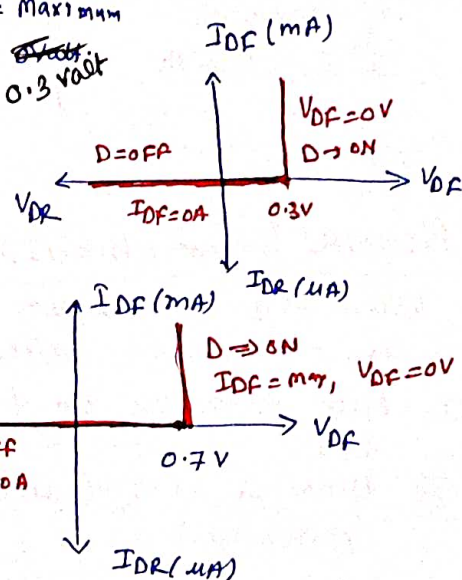 = Maximum
0.3 valt
IDF (mA)
VDF = 0V
D → ON
D = OFF
VDR
VDF
IDF = 0A
0.3V
IDR (μA)
IDF (mA)
D ⇒ ON
IDF = Max, VDF = 0V
VDF
0.7 V
f
0A
IDR (μA)